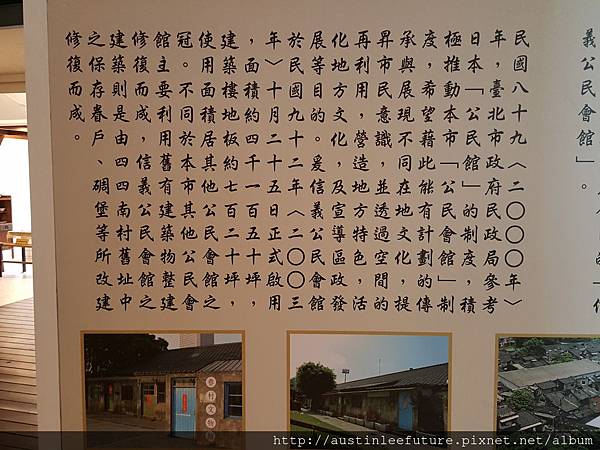 義公民會館」。
民國八十九︵二〇〇〇年︶
年，臺北市政府民政局參考
日本「公民館」的制度，積
極推動本市「公民會館」制
度，希望藉此能有計劃的傳
承與展現不同在地文化，提
昇市民意識，並透過空間的
再利用，營造地方特色，活
化地方文化，及宣導區政發
展等目的。爰信義公民會館
於民國九十二年︵二〇〇三
年︶十月二十五日正式啟用
，面積約四千一百二十坪，
建築樓地板約七百二十坪，
使用面積居其他公民會館之
冠。不同於本市其他公民會
館主要利用舊有建築物整建
修復而成，信義公民會館之
建築則是由四四南村舊址中
之保存眷戶、碉堡等所改建
修復而成。
http://austinleefuture.pixnet.net/album